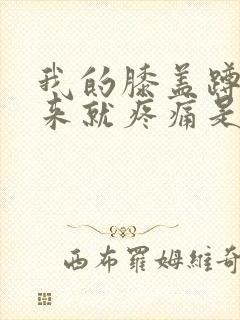 我的膝盖蹲
来就疼痛是
西布罗姆维奇